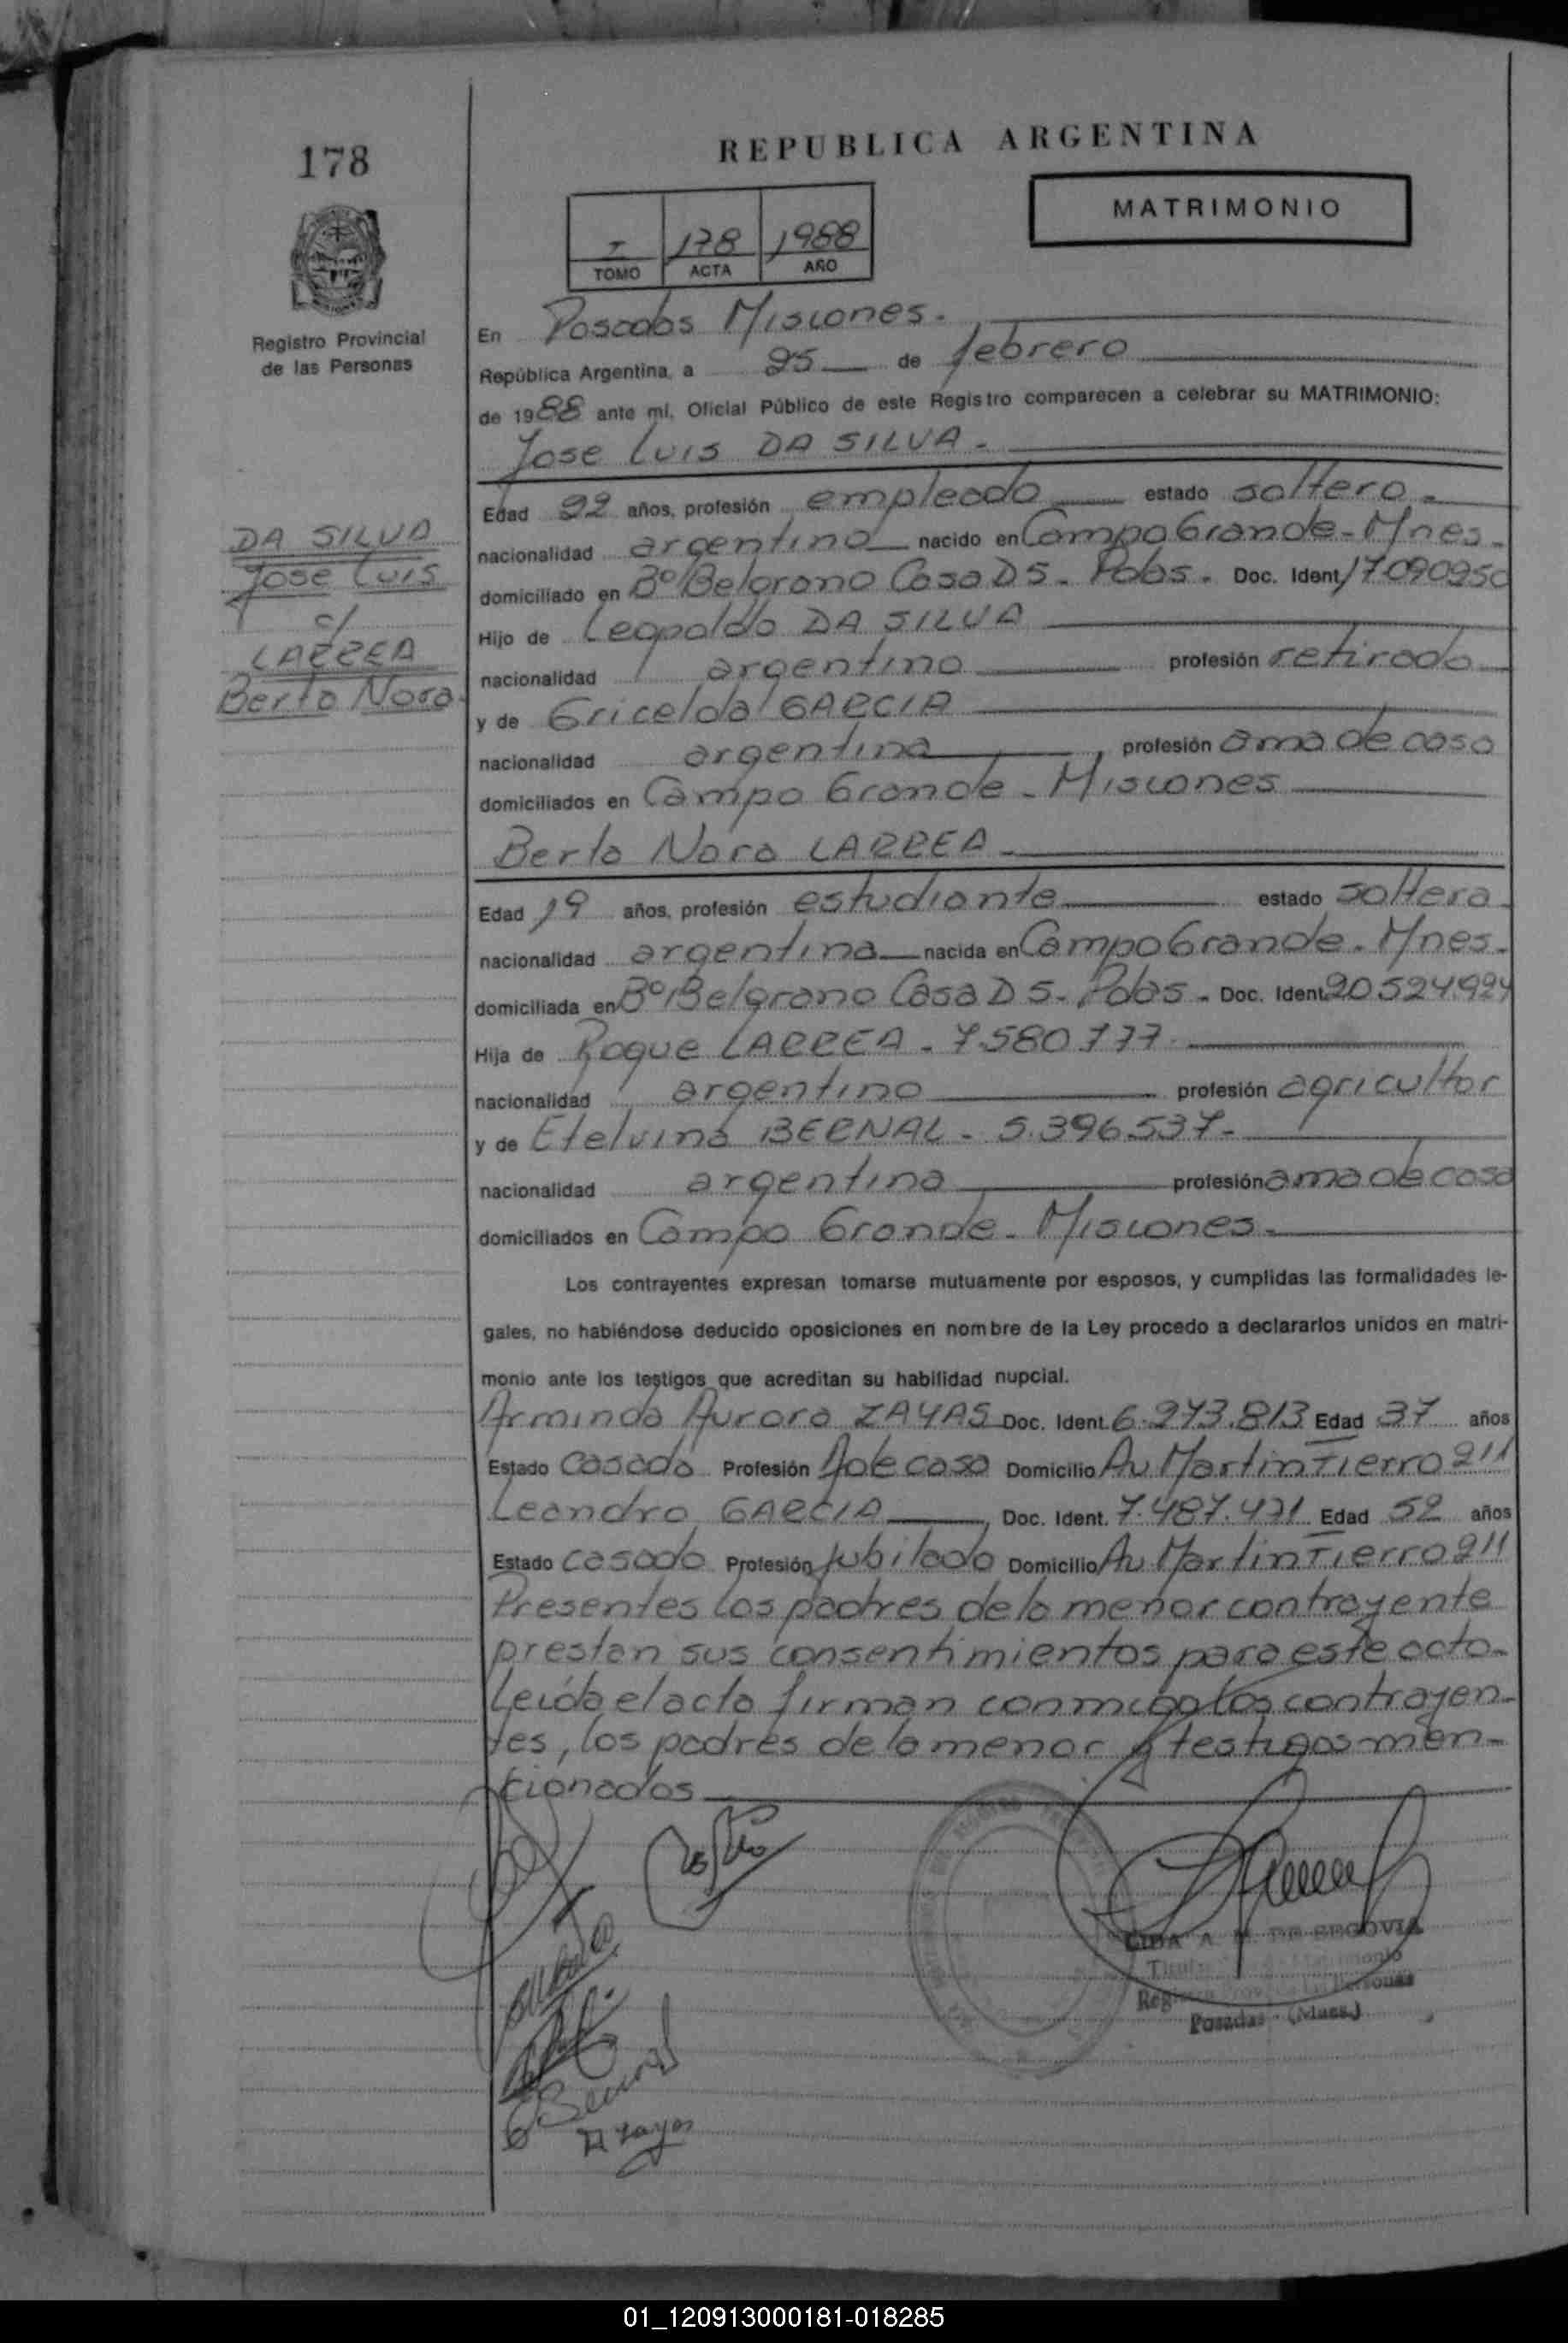 178
REPUBLICA ARGENTINA
MATRIMONIO
I 178 1988
TOMO ACTA AÑO
Registro Provincial
de las Personas
En Posadas Misiones.
República Argentina, a 25 de febrero
de 1988 ante mí, Oficial Público de este Registro comparecen a celebrar su MATRIMONIO:
Jose Luis DA SILVA.
Edad 22 años, profesión empleado estado soltero.
nacionalidad argentino nacido en Campo Grande-Mnes.
domiciliado en Bº Belgrano Casa D5. Pdas. Doc. Ident. 17090950
Hijo de Leopoldo DA SILVA
nacionalidad argentino profesión retirado
y de Gricelda GARCIA
nacionalidad argentina, profesión ama de casa
domiciliados en Campo Grande - Misiones
DA SILVA
Jose Luis
c/
LARREA
Berta Nora.
Berta Nora LARREA.
Edad 19 años, profesión estudiante estado soltera.
nacionalidad argentina nacida en Campo Grande. Mnes.
domiciliada en Bº Belgrano Casa D5. Pdas. Doc. Ident. 20.524.924
Hija de Roque LARREA - 7.580.777.
nacionalidad argentino profesión agricultor
y de Etelvina BERNAL - 5.396.537.
nacionalidad argentina profesión ama de casa
domiciliados en Campo Grande. Misiones.
Los contrayentes expresan tomarse mutuamente por esposos, y cumplidas las formalidades le-
gales, no habiéndose deducido oposiciones en nombre de la Ley procedo a declararlos unidos en matri-
monio ante los testigos que acreditan su habilidad nupcial.
Arminda Aurora ZAYAS Doc. Ident. 6.273.813 Edad 37 años
Estado casada Profesión A de casa Domicilio Av Martin Fierro 211
Leandro GARCIA, Doc. Ident. 7.487.471 Edad 52 años
Estado casado Profesión Jubilado Domicilio Av Martin Fierro 211
Presentes los padres de la menor contrayente
prestan sus consentimientos para este acto.
Leída el acta firman conmigo los contrayen-
tes, los padres de la menor y testigos men-
cionados
A. M. DE SEGOVIA
Personas
Posadas - (Mnes.)
Bernal
A Zayas
01_120913000181-018285